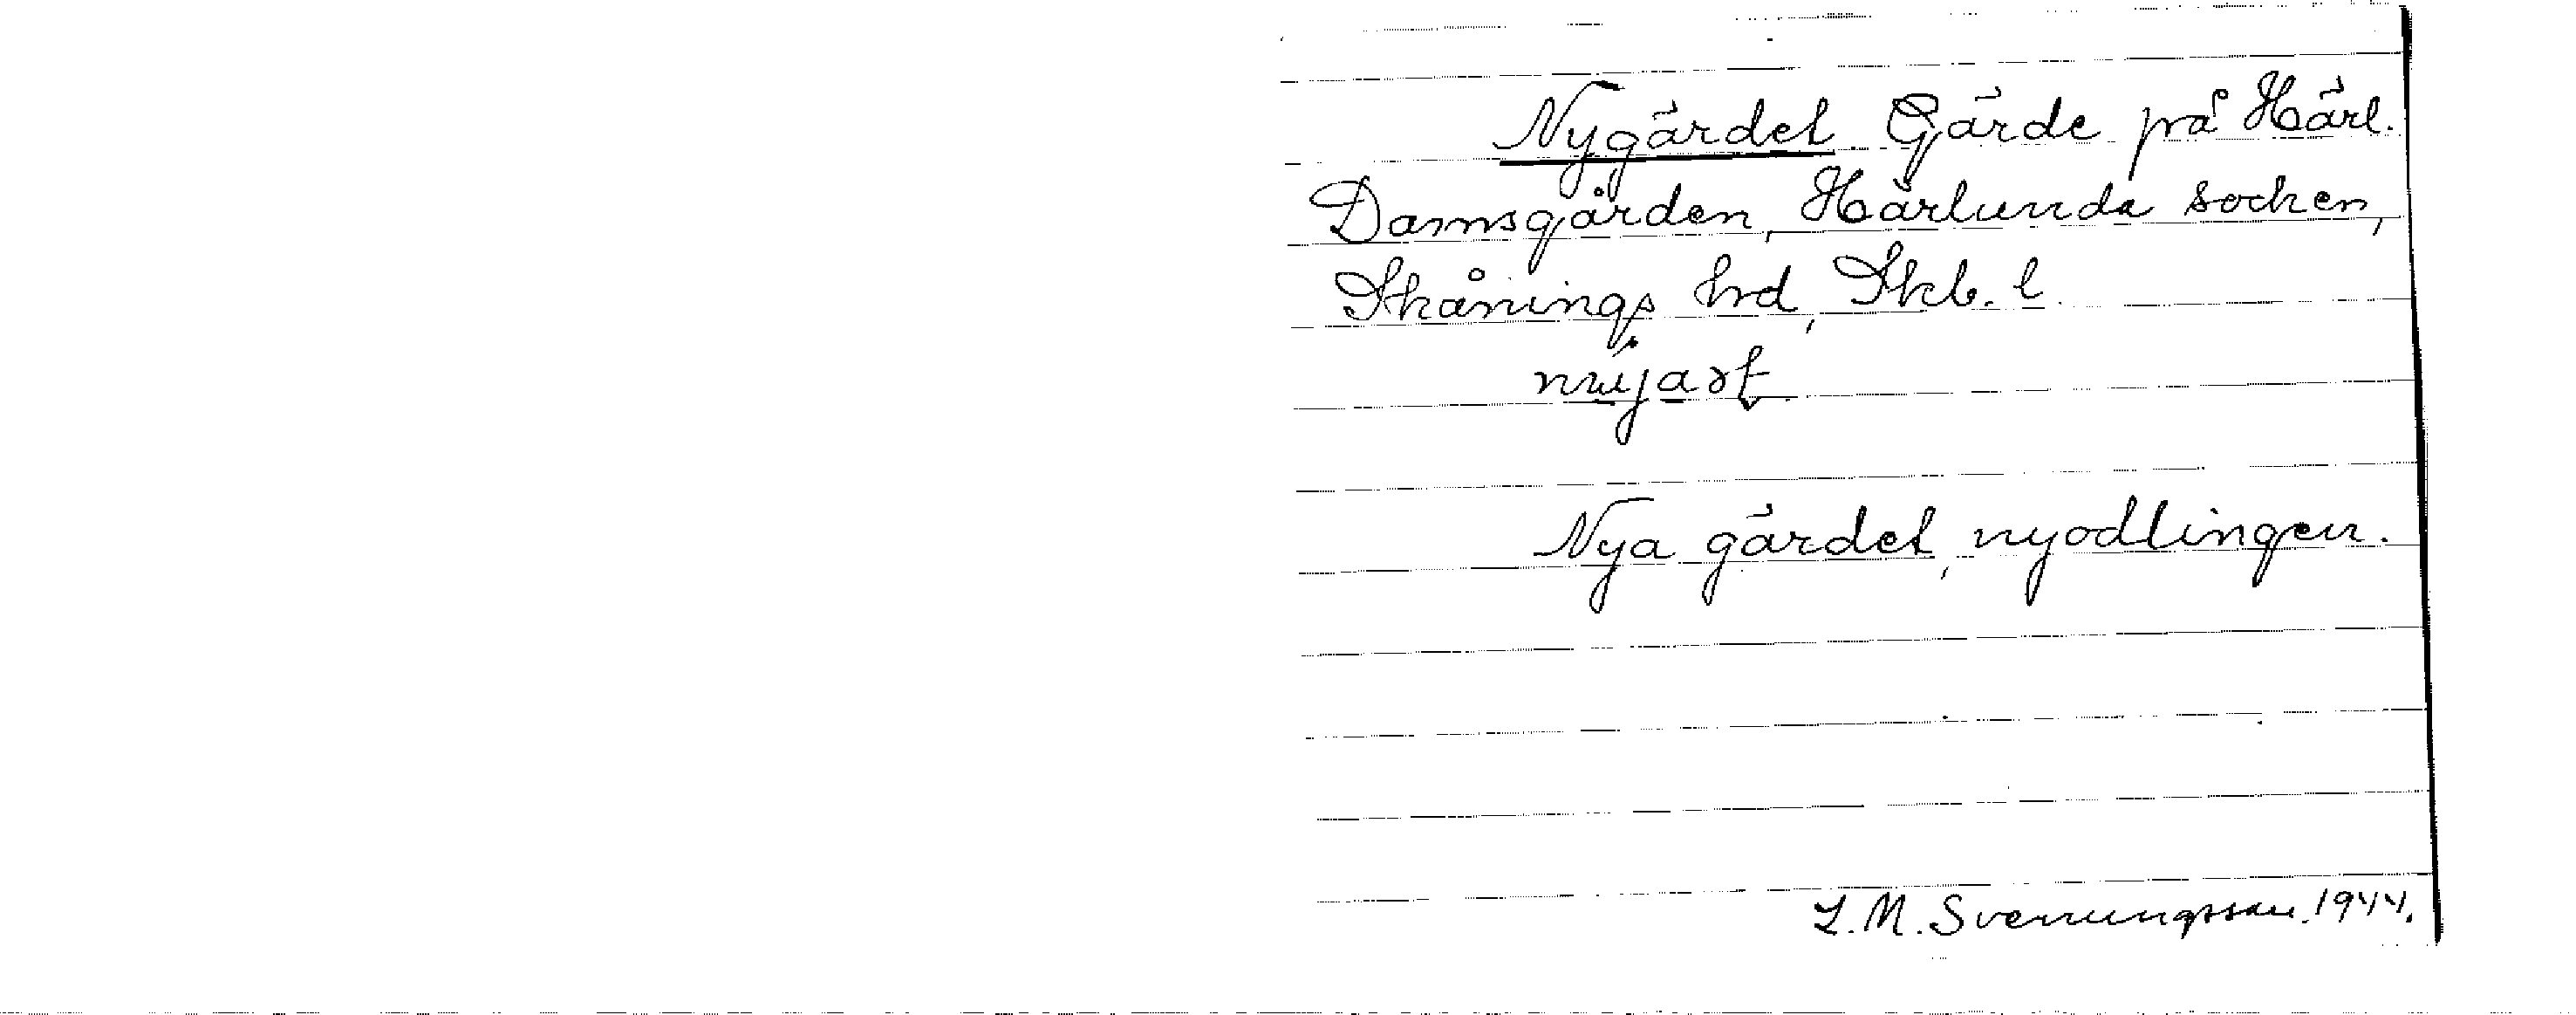 Nygärdet Gärde på Härl.
Damsgården, Härlunda socken,
Skånings hrd, Skb. l.
Nya gärdet, nyodlingen.
L. M. Svennungsson. 1944.